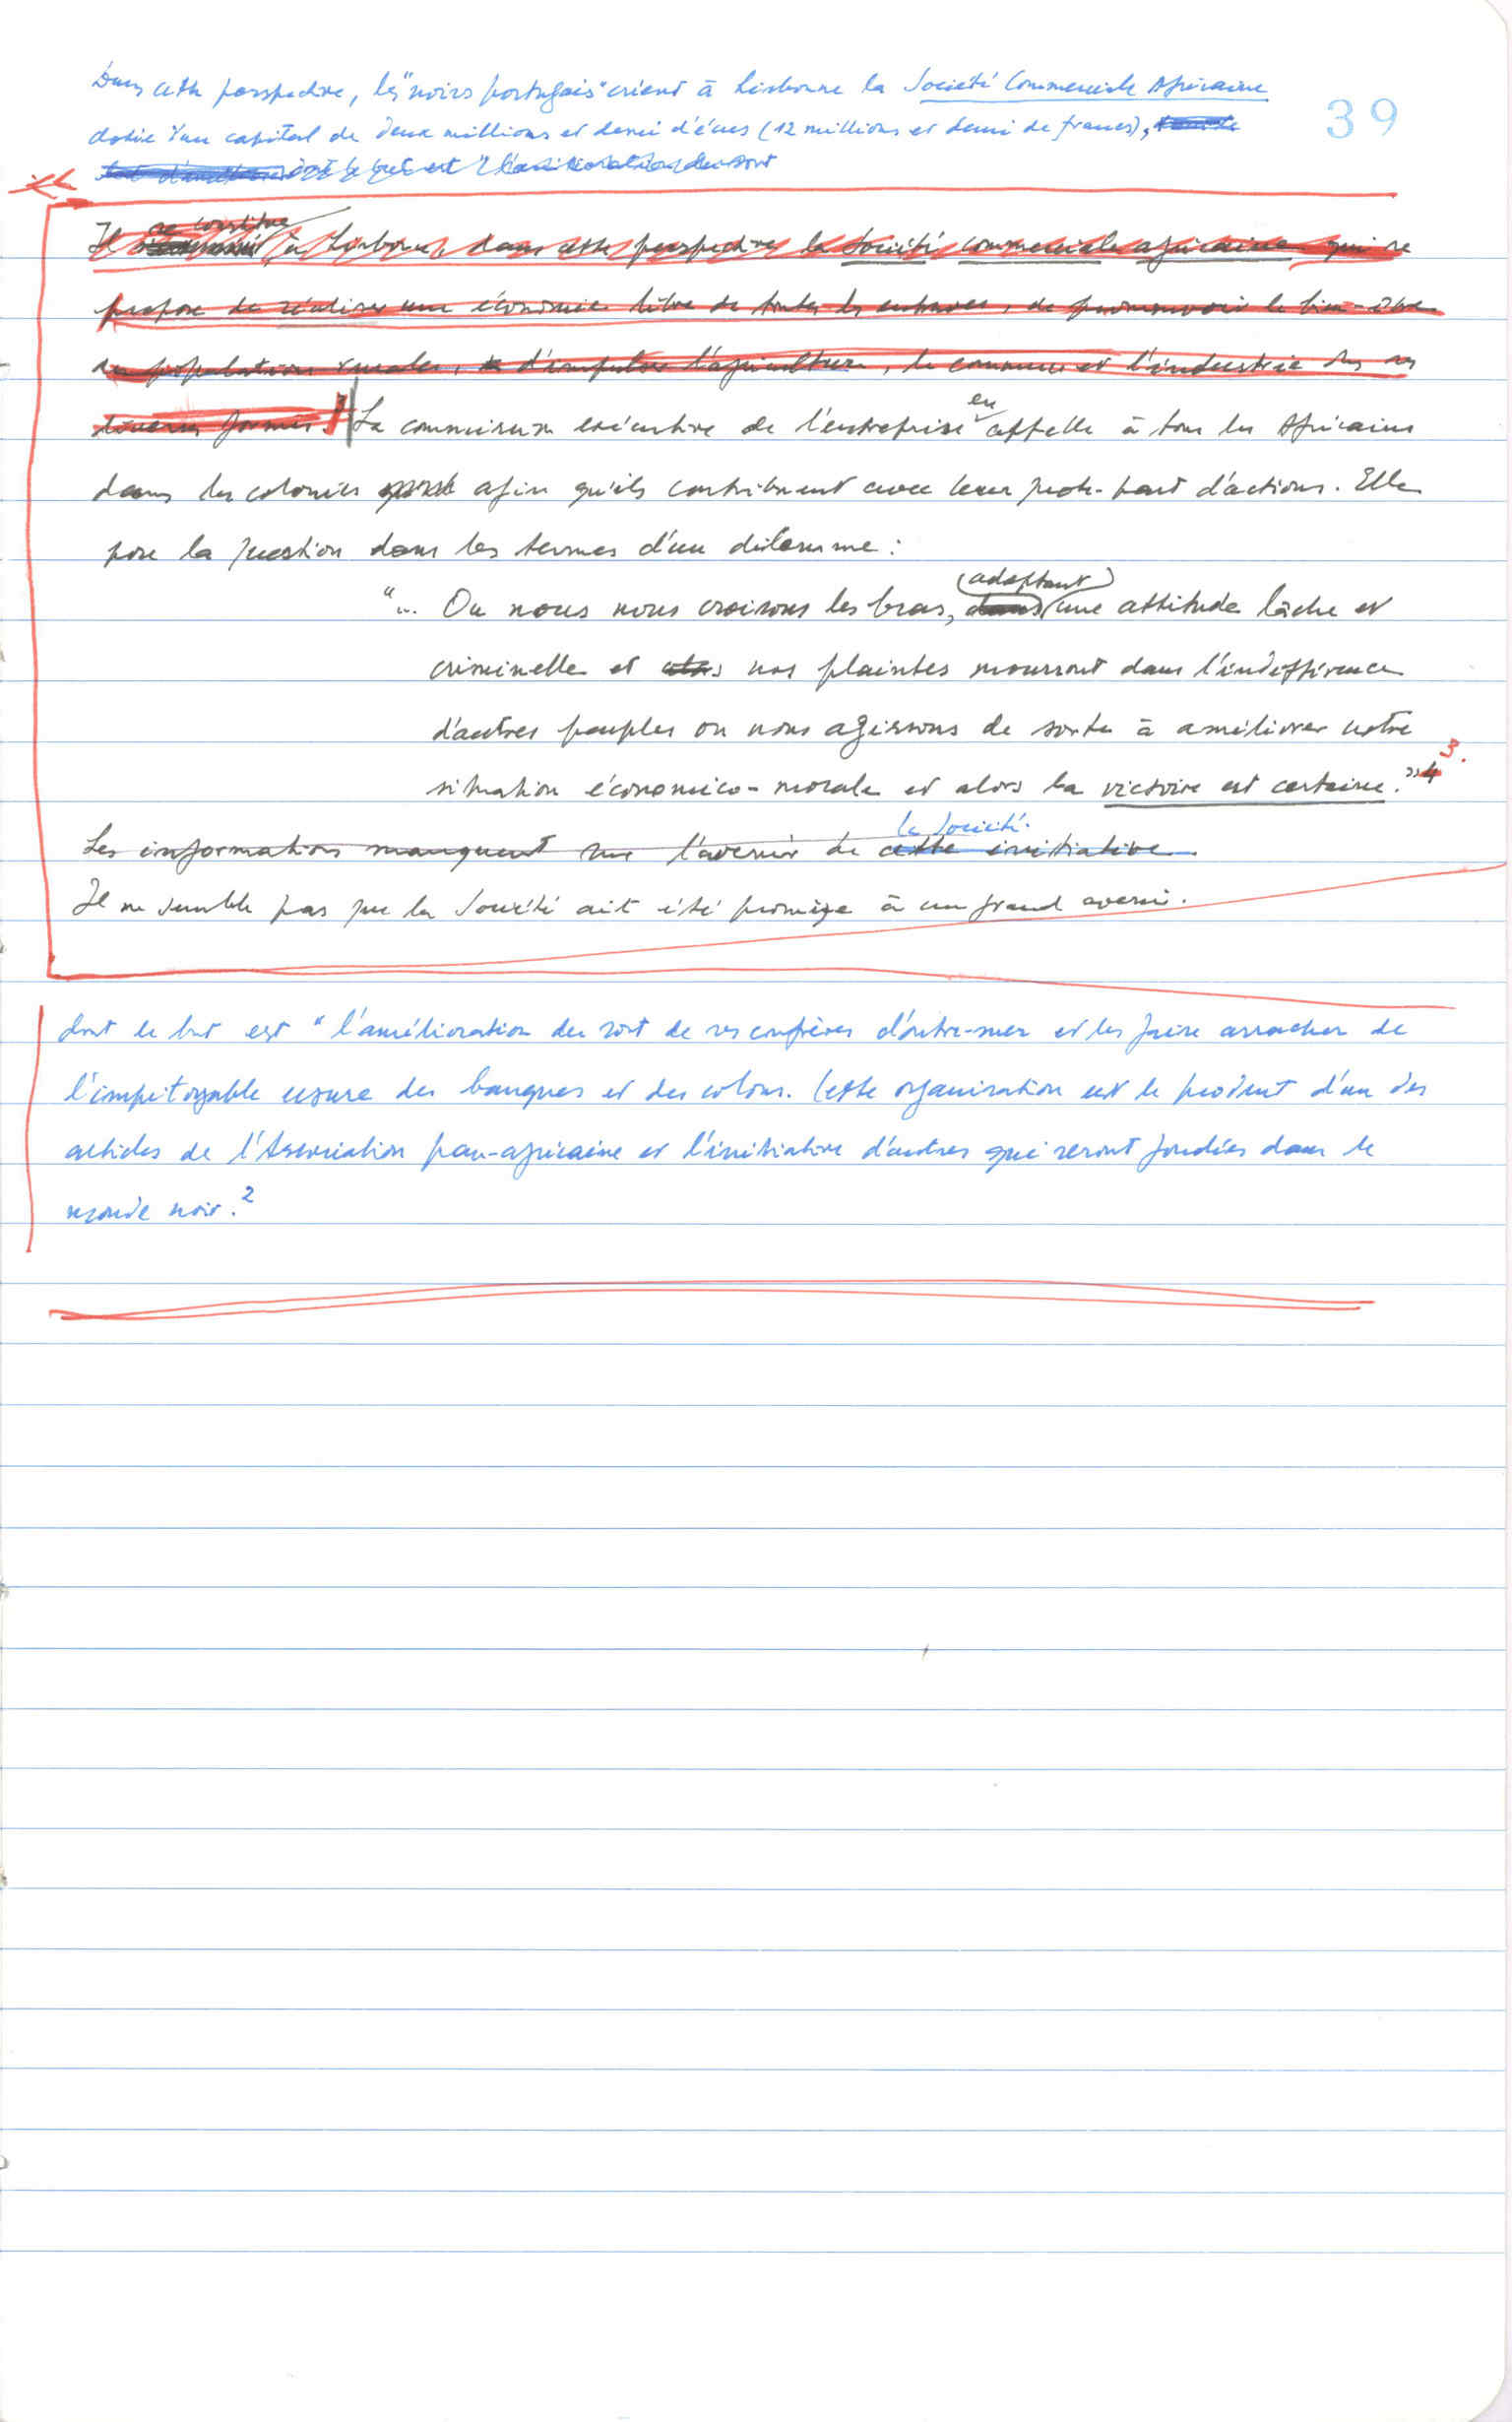 Dans cette perspective, les "noirs portugais" créent à Lisbonne la Société Commerciale Africaine
39
dotée d'un capital de deux millions et demi d'écus (12 millions et demi de francs),
dont le but est "l'amélioration du sort
se constitue
Il à Lisbonne, dans cette perspective, la Société commerciale africaine qui se
propose de réaliser une économie libre de toutes les entraves, de promouvoir le bien-être
des populations rurales, d'impulser l'agriculture, le commerce et l'industrie dans ses
diverses formes. La commission exécutive de l'entreprise en appelle à tous les Africains
dans les colonies afin qu'ils contribuent avec leur quote-part d'actions. Elle
pose la question dans les termes d'un dilemme :
(adoptant)
"... Ou nous nous croisons les bras, dans une attitude lâche et
criminelle et alors nos plaintes mourront dans l'indifférence
d'autres peuples ou nous agissons de sorte à améliorer notre
situation économico-morale et alors la victoire est certaine." 4 3.
la Société.
Les informations manquent sur l'avenir de cette initiative
Il ne semble pas que la Société ait été promise à un grand avenir.
dont le but est "l'amélioration du sort de ses confrères d'outre-mer et les faire arracher de
l'impitoyable usure des banques et des colons. Cette organisation est le produit d'un des
articles de l'Association pan-africaine et l'initiative d'autres qui seront fondées dans le
monde noir. 2